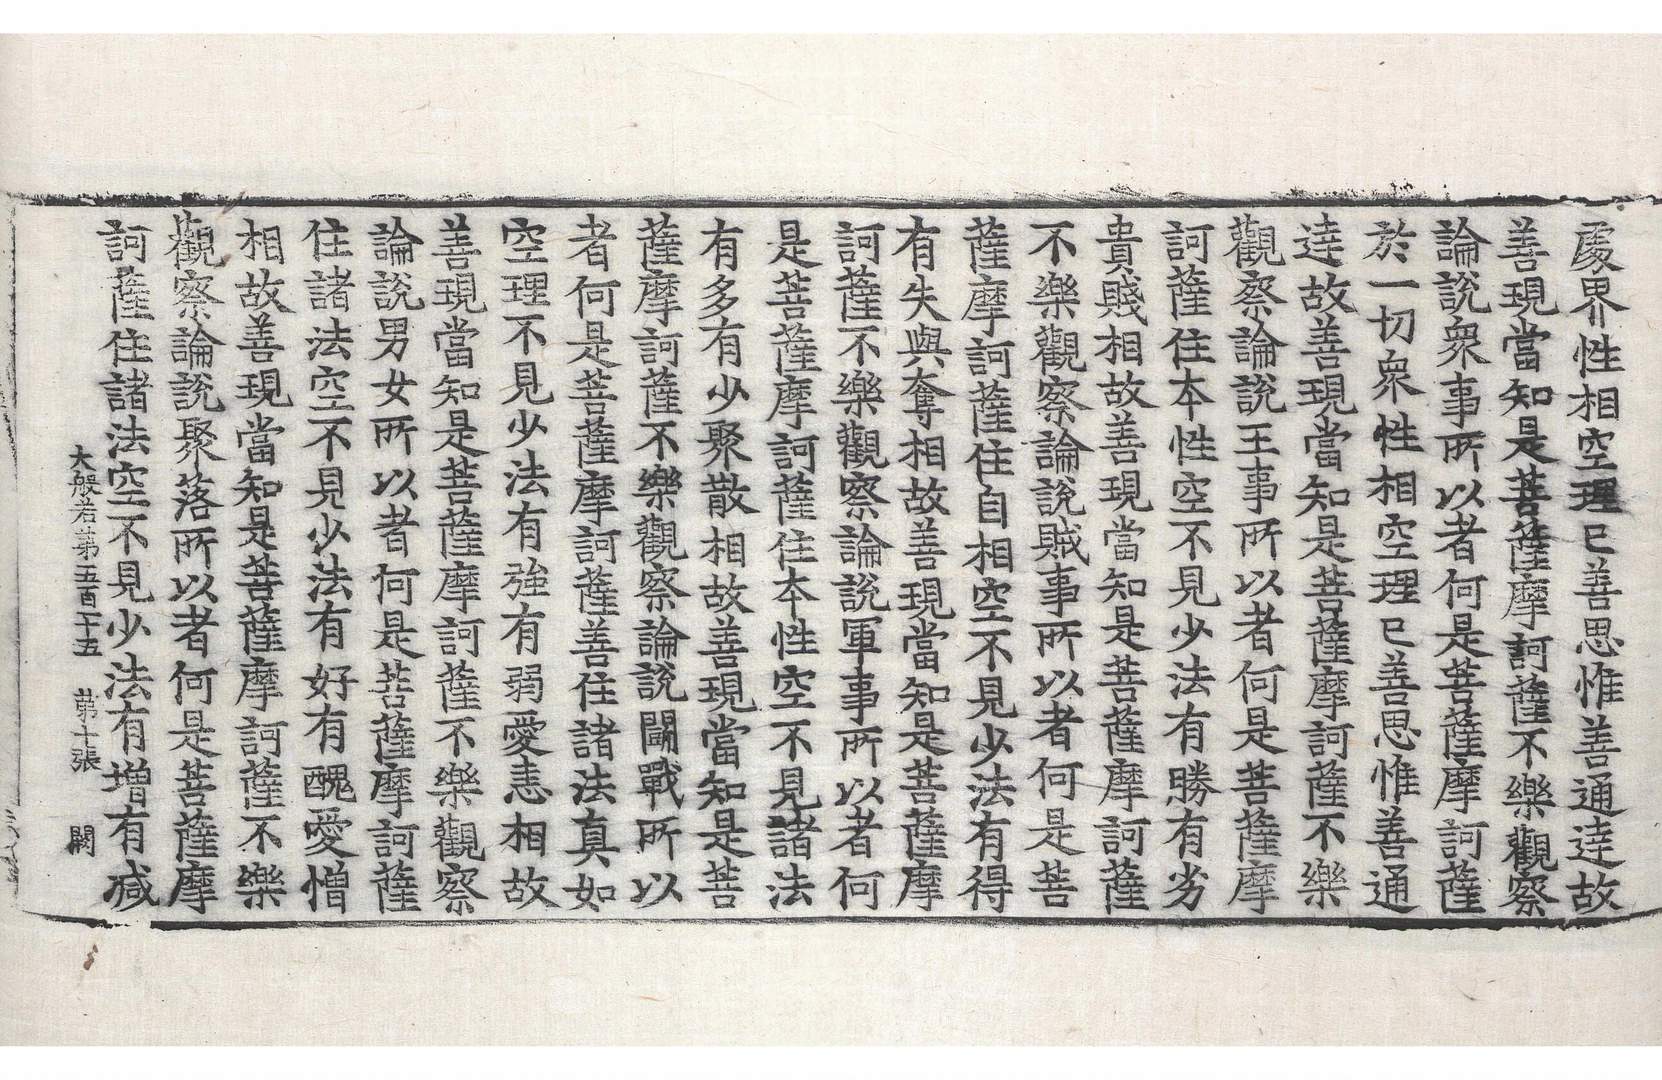 處界性相空理已善思惟善通達故
善現當知是菩薩摩訶薩不樂觀察
論說衆事所以者何是菩薩摩訶薩
於一切衆性相空理已善思惟善通
達故善現當知是菩薩摩訶薩不樂
觀察論說王事所以者何是菩薩摩
訶薩住本性空不見少法有勝有劣
貴賤相故善現當知是菩薩摩訶薩
不樂觀察論說賊事所以者何是菩
薩摩訶薩住自相空不見少法有得
有失與奪相故善現當知是菩薩摩
訶薩不樂觀察論說軍事所以者何
是菩薩摩訶薩住本性空不見諸法
有多有少聚散相故善現當知是菩
薩摩訶薩不樂觀察論說鬪戰所以
者何是菩薩摩訶薩善住諸法真如
空理不見少法有強有弱愛恚相故
善現當知是菩薩摩訶薩不樂觀察
論說男女所以者何是菩薩摩訶薩
住諸法空不見少法有好有醜愛憎
相故善現當知是菩薩摩訶薩不樂
觀察論說聚落所以者何是菩薩摩
訶薩住諸法空不見少法有增有減
大般若第五百二十五 第十張 闕